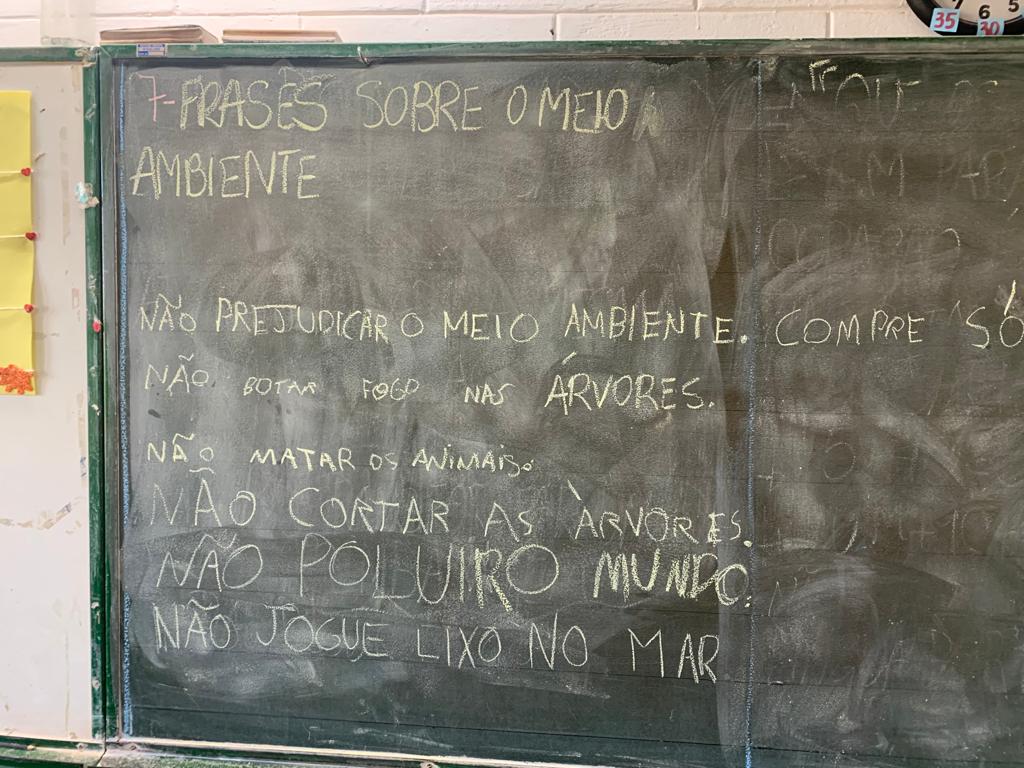 7-FRASES SOBRE O MEIO
AMBIENTE
NÃO PREJUDICAR O MEIO AMBIENTE. COMPRE SÓ
NÃO BOTAR FOGO NAS ÁRVORES.
NÃO MATAR OS ANIMAIS.
NÃO CORTAR AS ÀRVORES.
NÃO POLUIR O MUNDO.
NÃO JOGUE LIXO NO MAR
7 6 5
35 30